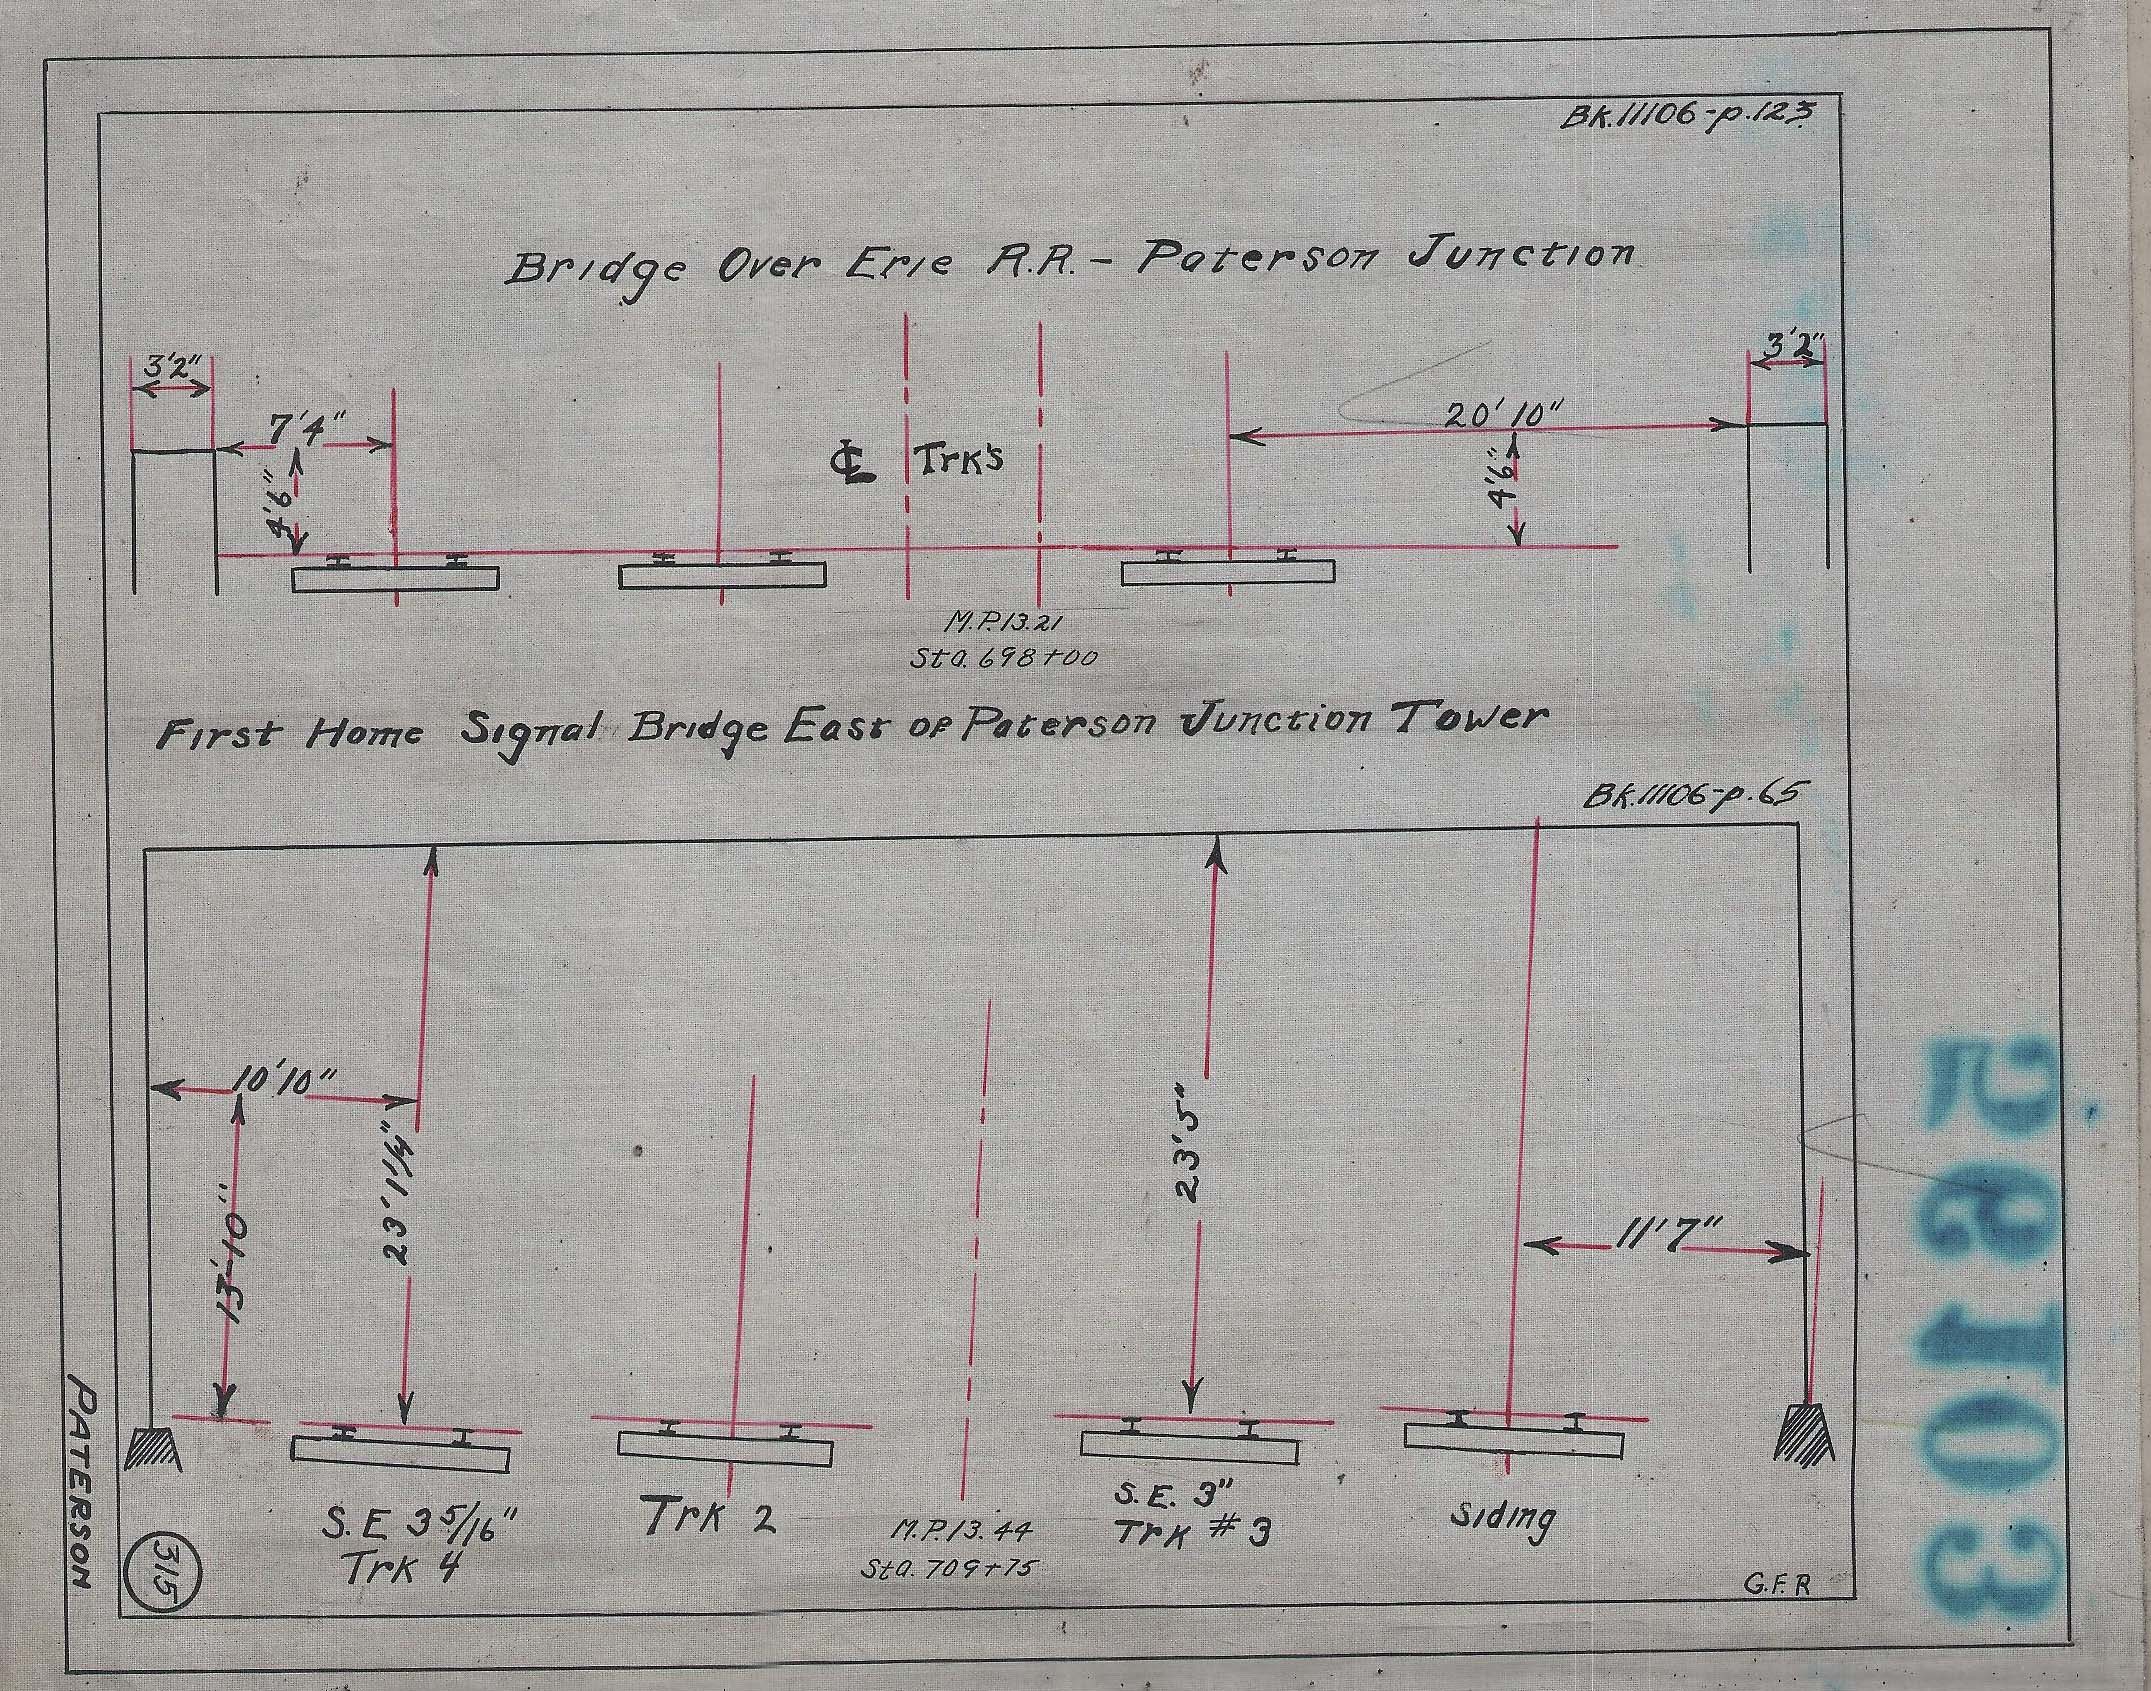 Bk.11106-p.123
Bridge Over Erie R.R. - Paterson Junction
3'2"
3'2"
7'4"
20'10"
4'6"
℄ Trk's
4'6"
M.P.13.21
Sta. 698+00
First Home Signal Bridge East of Paterson Junction Tower
Bk.11106-p.65
10'10"
23'1¼"
23'5"
13'-10"
11'7"
S.E 3 5/16"
Trk 4
Trk 2
M.P.13.44
Sta. 709+75
S.E. 3"
Trk # 3
Siding
G.F.R
PATERSON
315
59103